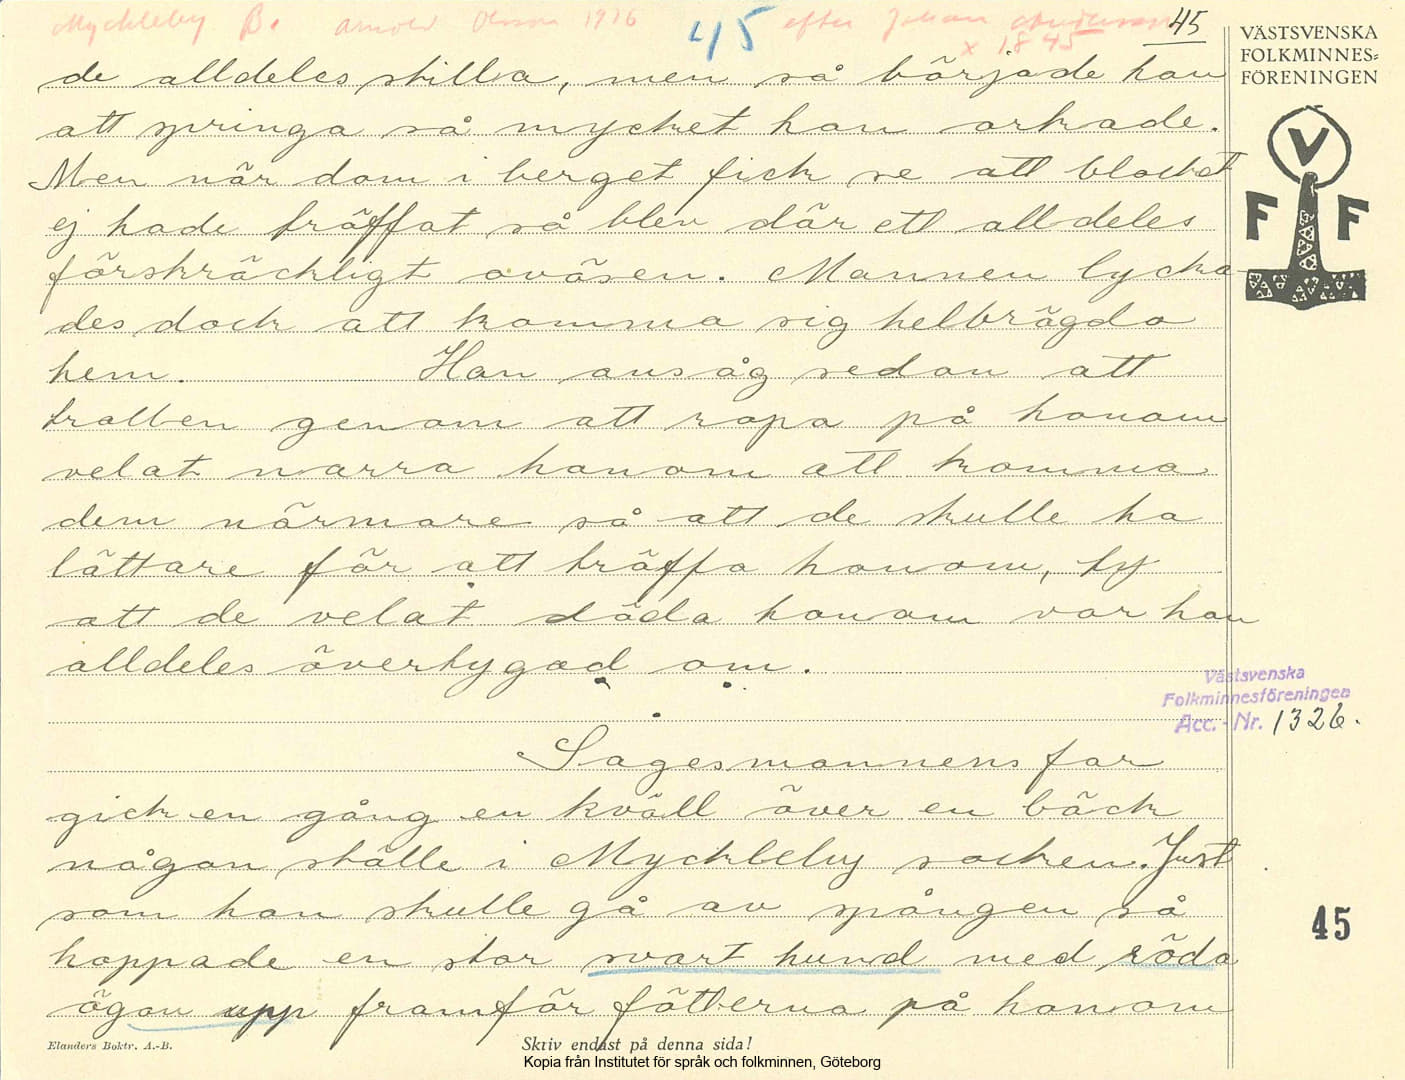 Myckleby B. Arnold Olsson 1926 45 efter Johan Andersson 45
x 1845
VÄSTSVENSKA
FOLKMINNES=
FÖRENINGEN
V
F F
de alldeles stilla, men så började han
att springa så mycket han orkade.
Men när dom i berget fick se att blocket
ej hade träffat så blev där ett alldeles
förskräckligt oväsen. Mannen lycka-
des dock att komma sig helbrägda
hem. Han ansåg sedan att
trollen genom att ropa på honom
velat narra honom att komma
dem närmare så att de skulle ha
lättare för att träffa honom, ty
att de velat döda honom var han
alldeles övertygad om.
Västsvenska
Folkminnesföreningen
Acc.-Nr. 1326.
Sagesmannens far
gick en gång en kväll över en bäck
någon ställe i Myckleby socken. Just
som han skulle gå av spången så
hoppade en stor svart hund med röda
ögon upp framför fötterna på honom
45
Elanders Boktr. A.-B.
Skriv endast på denna sida!
Kopia från Institutet för språk och folkminnen, Göteborg